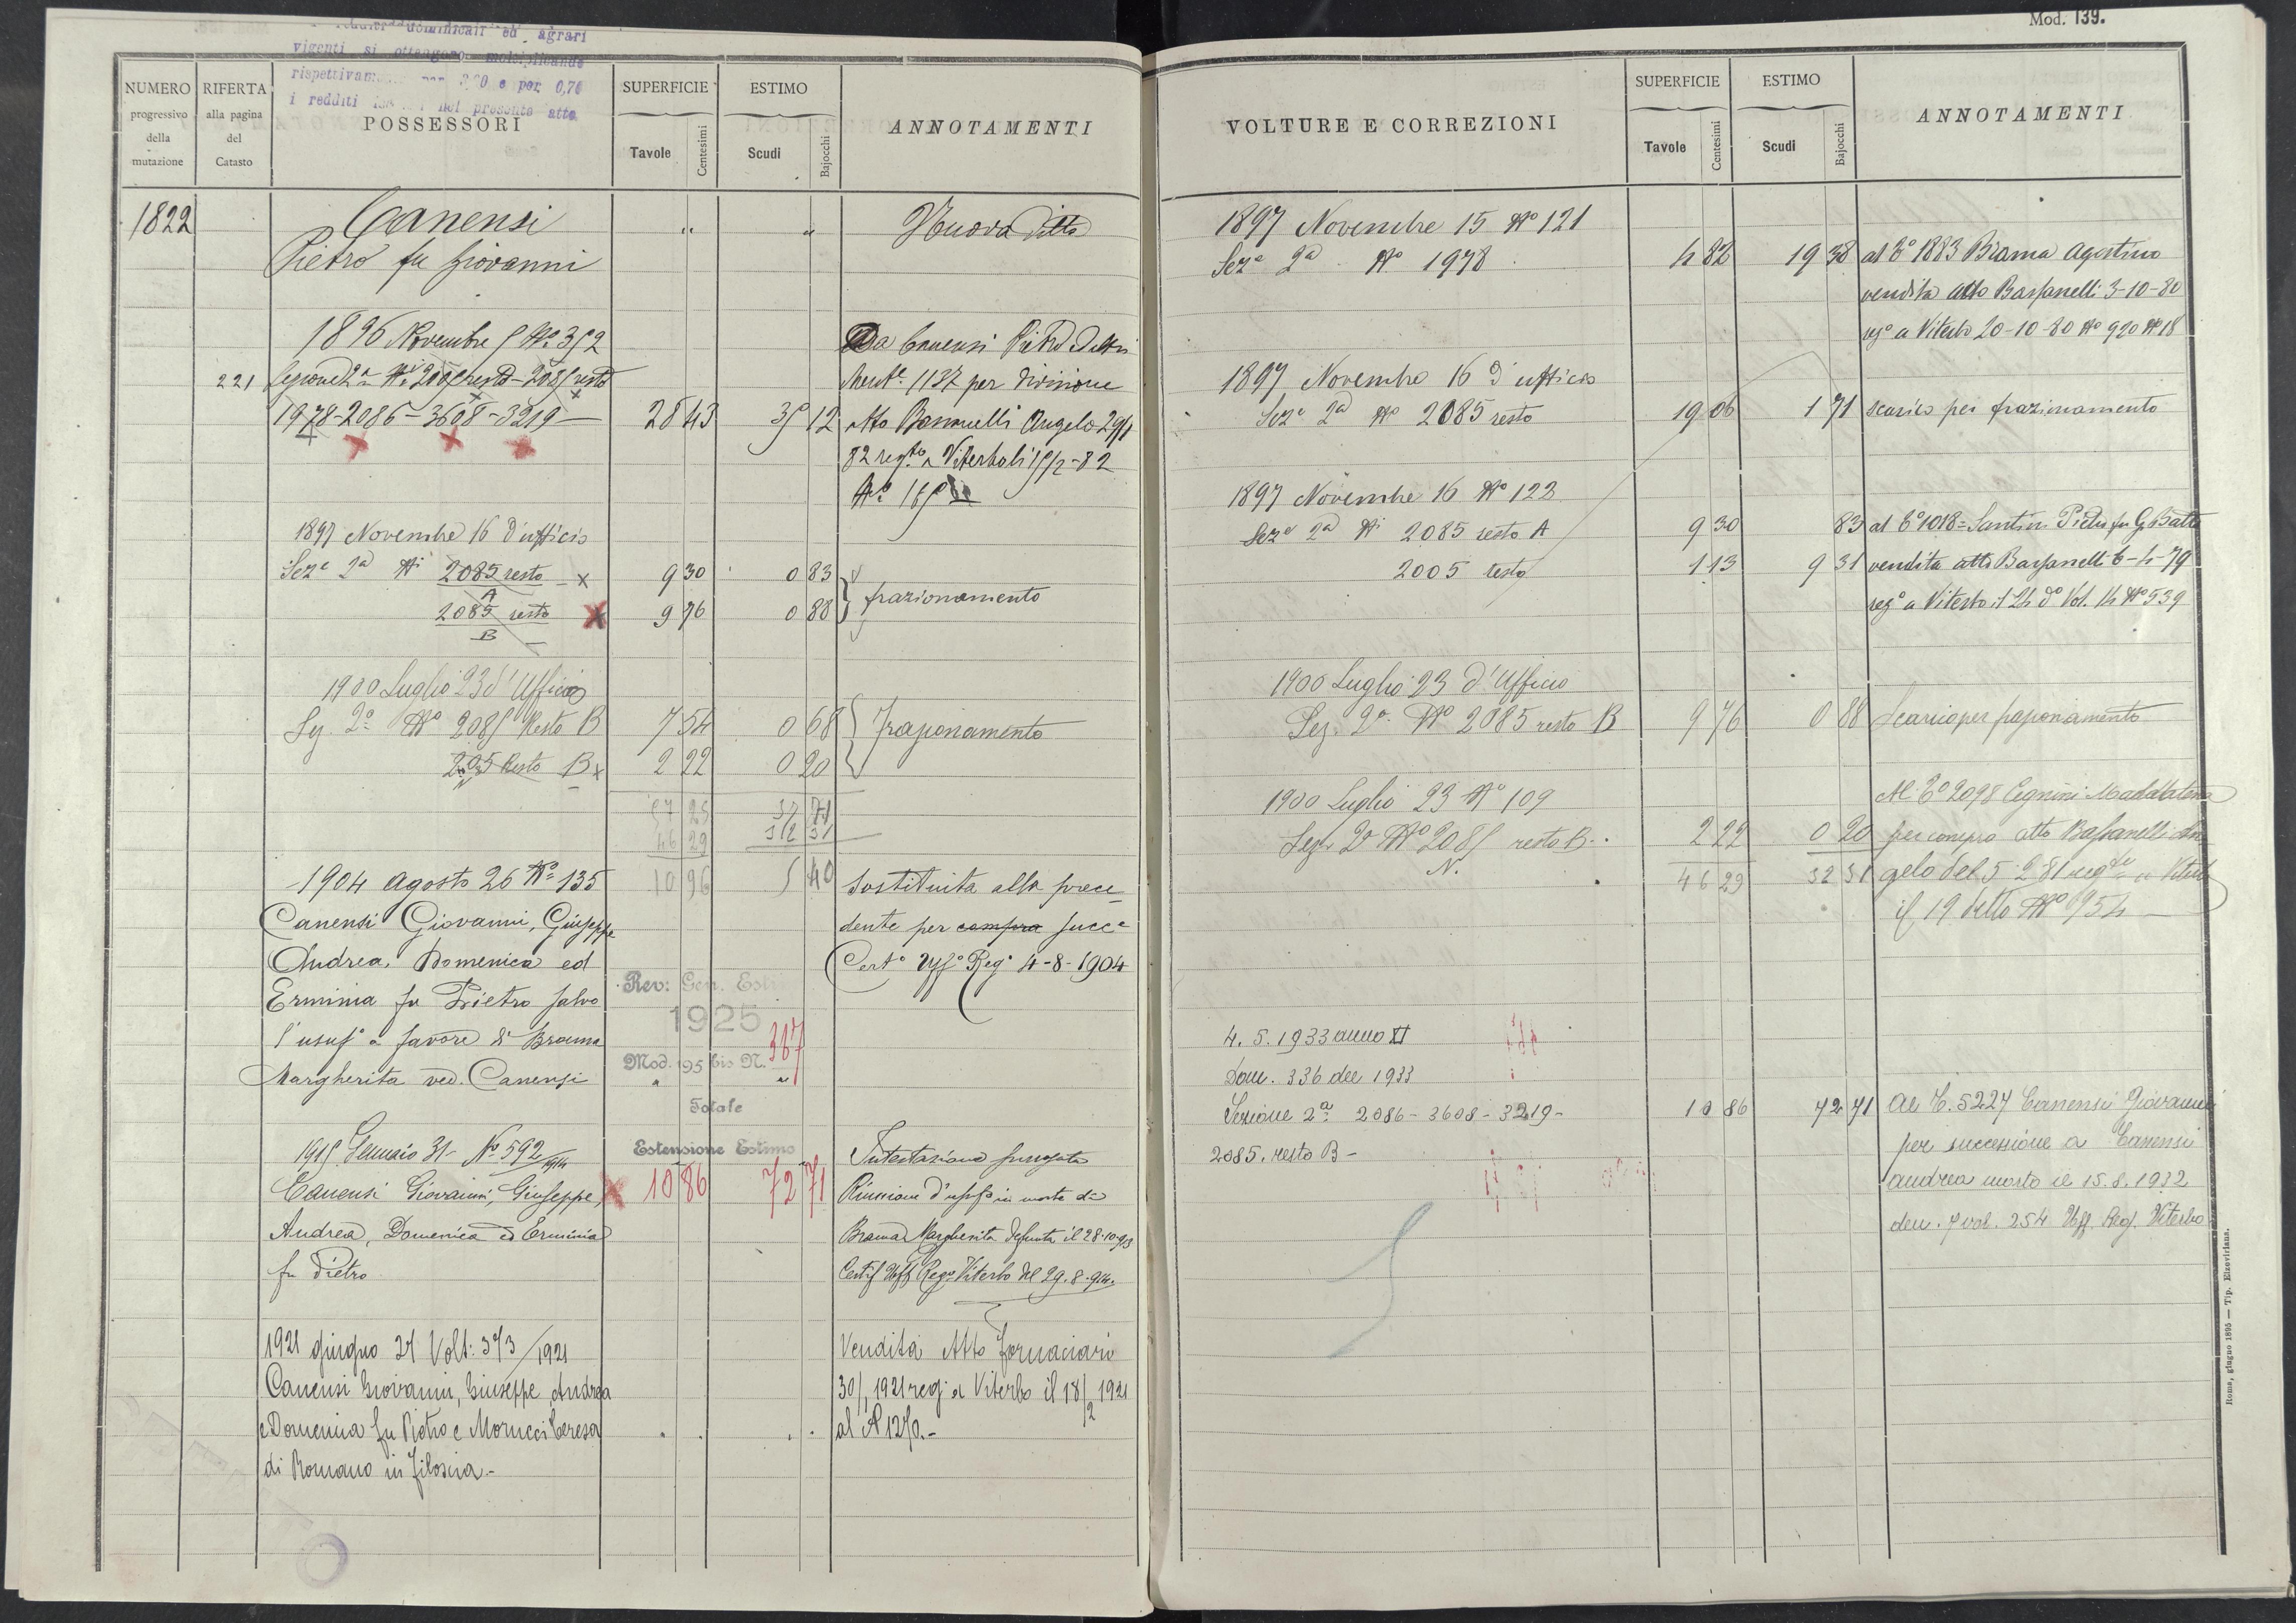 Mod. 139.
redditi dominicali ed agrari
vigenti si ottengono moltiplicando
rispettivam... per 3,20 e per 0,70
i redditi nel presente atto
NUMERO
progressivo
della
mutazione
RIFERTA
alla pagina
del
Catasto
POSSESSORI
SUPERFICIE
Tavole
Centesimi
ESTIMO
Scudi
Bajocchi
ANNOTAMENTI
1822 Canensi " " Nuova Ditta
Pietro fu Giovanni
1896 Novembre 5 No 352 Da Canensi Pietro
221 Sezione 2a Ni 2005 resto - 2085 resto 1137 per divisione
1978-2086-3608-3219 28 43 35 12 atto Angelo 29/1
82 regto a Viterbo li 15/2-82
No 165
1897 Novembre 16 D'ufficio
Seze 2a Ni 2085 resto A x 9 30 0 83
2085 resto B x 9 76 0 88 frazionamento
1900 Luglio 23 d'Ufficio
Sez. 2a No 2085 Resto B 7 54 0 68 Frazionamento
Resto B x 2 22 0 20
57 25 37 71
46 29 32 31
10 96 5 40
1904 Agosto 26 No 135 Sostituita alla prece-
Canensi Giovanni, Giuseppe dente per compra succe
Andrea, Domenica ed Certo Uffo Rego 4-8-1904
Erminia fu Pietro salvo
l'usufo a favore di Brama
Margherita ved. Canensi
Rev: Gen. Esti
1925
Mod. 95 bis N. 367
" "
Totale
Estensione Estimo
10 86 72 71
1915 Gennaio 31 - No 592/1914 Intestazione surrogata
Canensi Giovanni, Giuseppe, Riunione d'usufo in morte di
Andrea, Domenica ed Erminia Brama Margherita defunta il 28-10-913
fu Pietro Certif Uff Rego Viterbo del 29.8.914.
1921 giugno 27 Volt: 373/1921 Vendita Atto Fornaciari
Canensi Giovanni, Giuseppe, Andrea 30/1 1921 reg: a Viterbo il 18/2 1921
e Domenica fu Pietro e Morucci Teresa al N 1270.-
di Romano in Filoscia.-
VOLTURE E CORREZIONI
SUPERFICIE
Tavole
Centesimi
ESTIMO
Scudi
Bajocchi
ANNOTAMENTI
1897 Novembre 15 No 121
Seze 2a No 1978 4 82 19 38 al Co 1883 Brama Agostino
vendita atto Bassanelli 3-10-80
rego a Viterbo 20-10-80 No 920 No 18
1897 Novembre 16 D'ufficio
Seze 2a No 2085 resto 19 06 1 71 scarico per frazionamento
1897 Novembre 16 No 122
Seze 2a Ni 2085 resto A 9 30 83 al Co 1018 = Santini Pietro fu G.Batta
2005 resto 1 13 9 31 vendita atto Bassanelli 6-4-79
rego a Viterbo il 24 do Vol. 14 No 539
1900 Luglio 23 d'Ufficio
Sez. 2a No 2085 resto B 9 76 0 88 Scarico per frazionamento
1900 Luglio 23 No 109 Al Co 2098 Maddalena
Sez. 2a No 2085 resto B. 2 22 0 20 per compra atto Bassanelli An
N. 46 29 32 31 gelo del 5-2-81 regto a Viterbo
il 19 detto No 954
4.5.1933 anno XI
Dom. 336 del 1933
Sezione 2a 2086-3608-3219- 10 86 72 71 Al C. 5227 Canensi Giovanni
2085. resto B - per successione a Canensi
Andrea morto il 15.8.1932
den. 7 vol. 254 Uff. Reg. Viterbo
Roma, giugno 1895 — Tip. Elzeviriana.